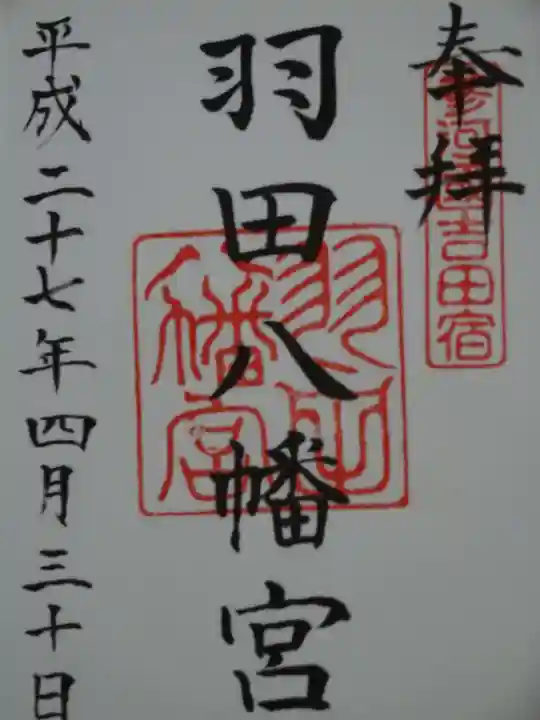 奉拝
参河國吉田宿
羽田八幡宮
羽田八幡宮
平成二十七年四月三十日